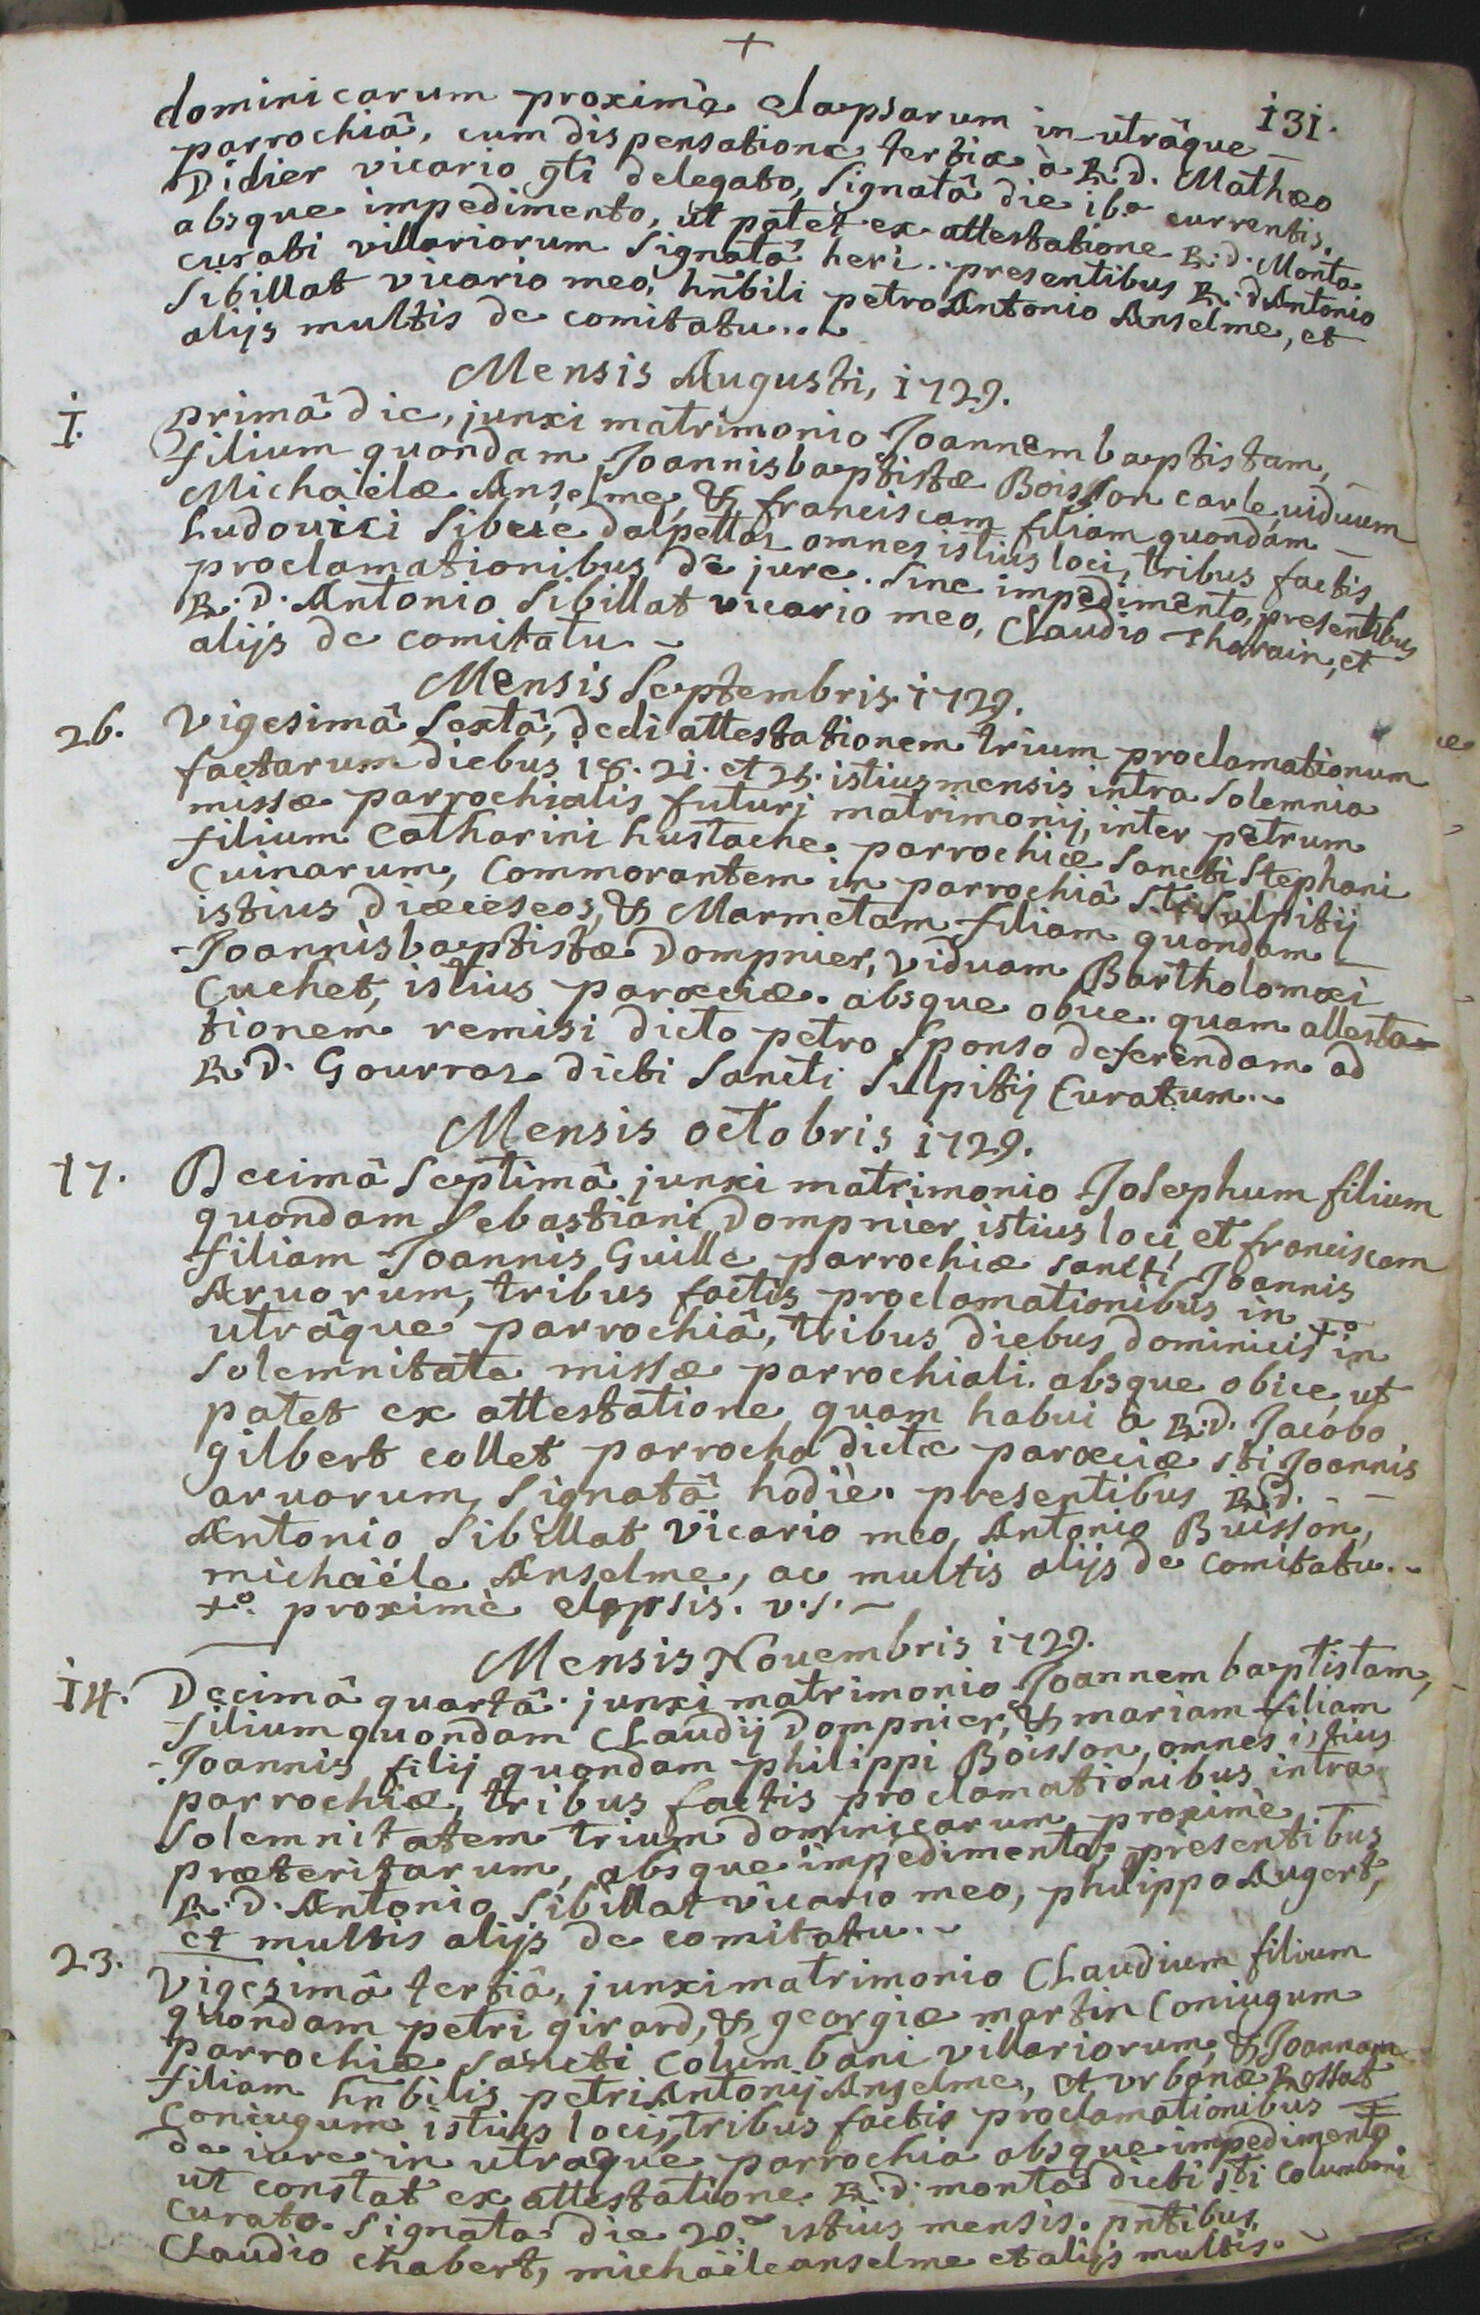 +
131.
dominicarum proximè elapsarum in utrâque
parrochiâ, cum dispensatione tertiæ à R.d. Mathæo
Didier vicario gñli delegato, signatâ die 16a currentis.
absque impedimento, ut patet ex attestatione R.d. Monta
curati villariorum signatâ heri. presentibus R.d. Antonio
Sibillat vicario meo, hñbili petro Antonio Anselme, et
alijs multis de comitatu...
Mensis Augusti, 1729.
1. primâ die, junxi matrimonio Joannem baptistam,
filium quondam Joannisbaptistæ Boisson carle, viduum
Michaëlæ Anselme, & franciscam filiam quondam
Ludovici Sibué dalpettaz omnes istius loci, tribus factis
proclamationibus de jure. sine impedimento, presentibus
R.D. Antonio Sibillat vicario meo, Claudio Tharain, et
alijs de comitatu.
Mensis Septembris 1729.
26. Vigesimâ Sextâ, dedi attestationem trium proclamationum
factarum diebus 18. 21. et 25. istius mensis intra solemnia
missæ parrochialis futuri matrimonij, inter petrum
filium Catharini hustache parrochiæ Sancti Stephani
Cuinarum, Commorantem in parrochiâ Sti Sulpitij
istius diæceseos, & Marmetam filiam quondam
Joannisbaptistæ Dompnier, viduam Bartholomæi
Cuchet, istius paræciæ. absque obice. quam attesta-
tionem remisi dicto petro sponso deferendam ad
R.D. Gourraz dicti Sancti Sulpitij Curatum..
Mensis octobris 1729.
17. Decimâ Septimâ junxi matrimonio Josephum filium
quondam Sebastiani Dompnier istius loci, et franciscam
filiam Joannis Guille parrochiæ Sancti Joannis
Arvorum, tribus factis proclamationibus in
utrâque parrochiâ, tribus diebus dominicis +o in
solemnitate missæ parrochiali. absque obice, ut
patet ex attestatione quam habui à R.D. Jacobo
gilbert collet parrocho dictæ paræciæ sti Joannis
arvorum, signatâ hodiè. presentibus R.d.
Antonio Sibillat vicario meo, Antonio Buisson,
michaële Anselme, ac multis alijs de comitatu..
+o. proximè elapsis. v.s.
Mensis Novembris 1729.
14. Decimâ quartâ. junxi matrimonio Joannem baptistam,
filium quondam Claudij Dompnier, & mariam filiam
Joannis filij quondam philippi Boisson, omnes istius
parrochiæ, tribus factis proclamationibus intra
solemnitatem trium dominicarum proximè
præteritarum, absque impedimento. presentibus
R.D. Antonio Sibillat vicario meo, philippo Augert,
et multis alijs de comitatu..
23. Vigesimâ tertiâ, junxi matrimonio Claudium filium
quondam petri girard, & georgiæ martin Coniugum
parrochiæ Sancti Columbani villariorum, & Joannam
filiam hñbilis petri Antonij Anselme, et vrbanæ Rossat
Coniugum istius loci, tribus factis proclamationibus
de iure in utraque parrochia absque impedimento
ut constat ex attestatione R.D. monta dicti sti Columbani
Curato. signata die 20a istius mensis. pntibus
Claudio chabert, michaële anselme et alijs multis.